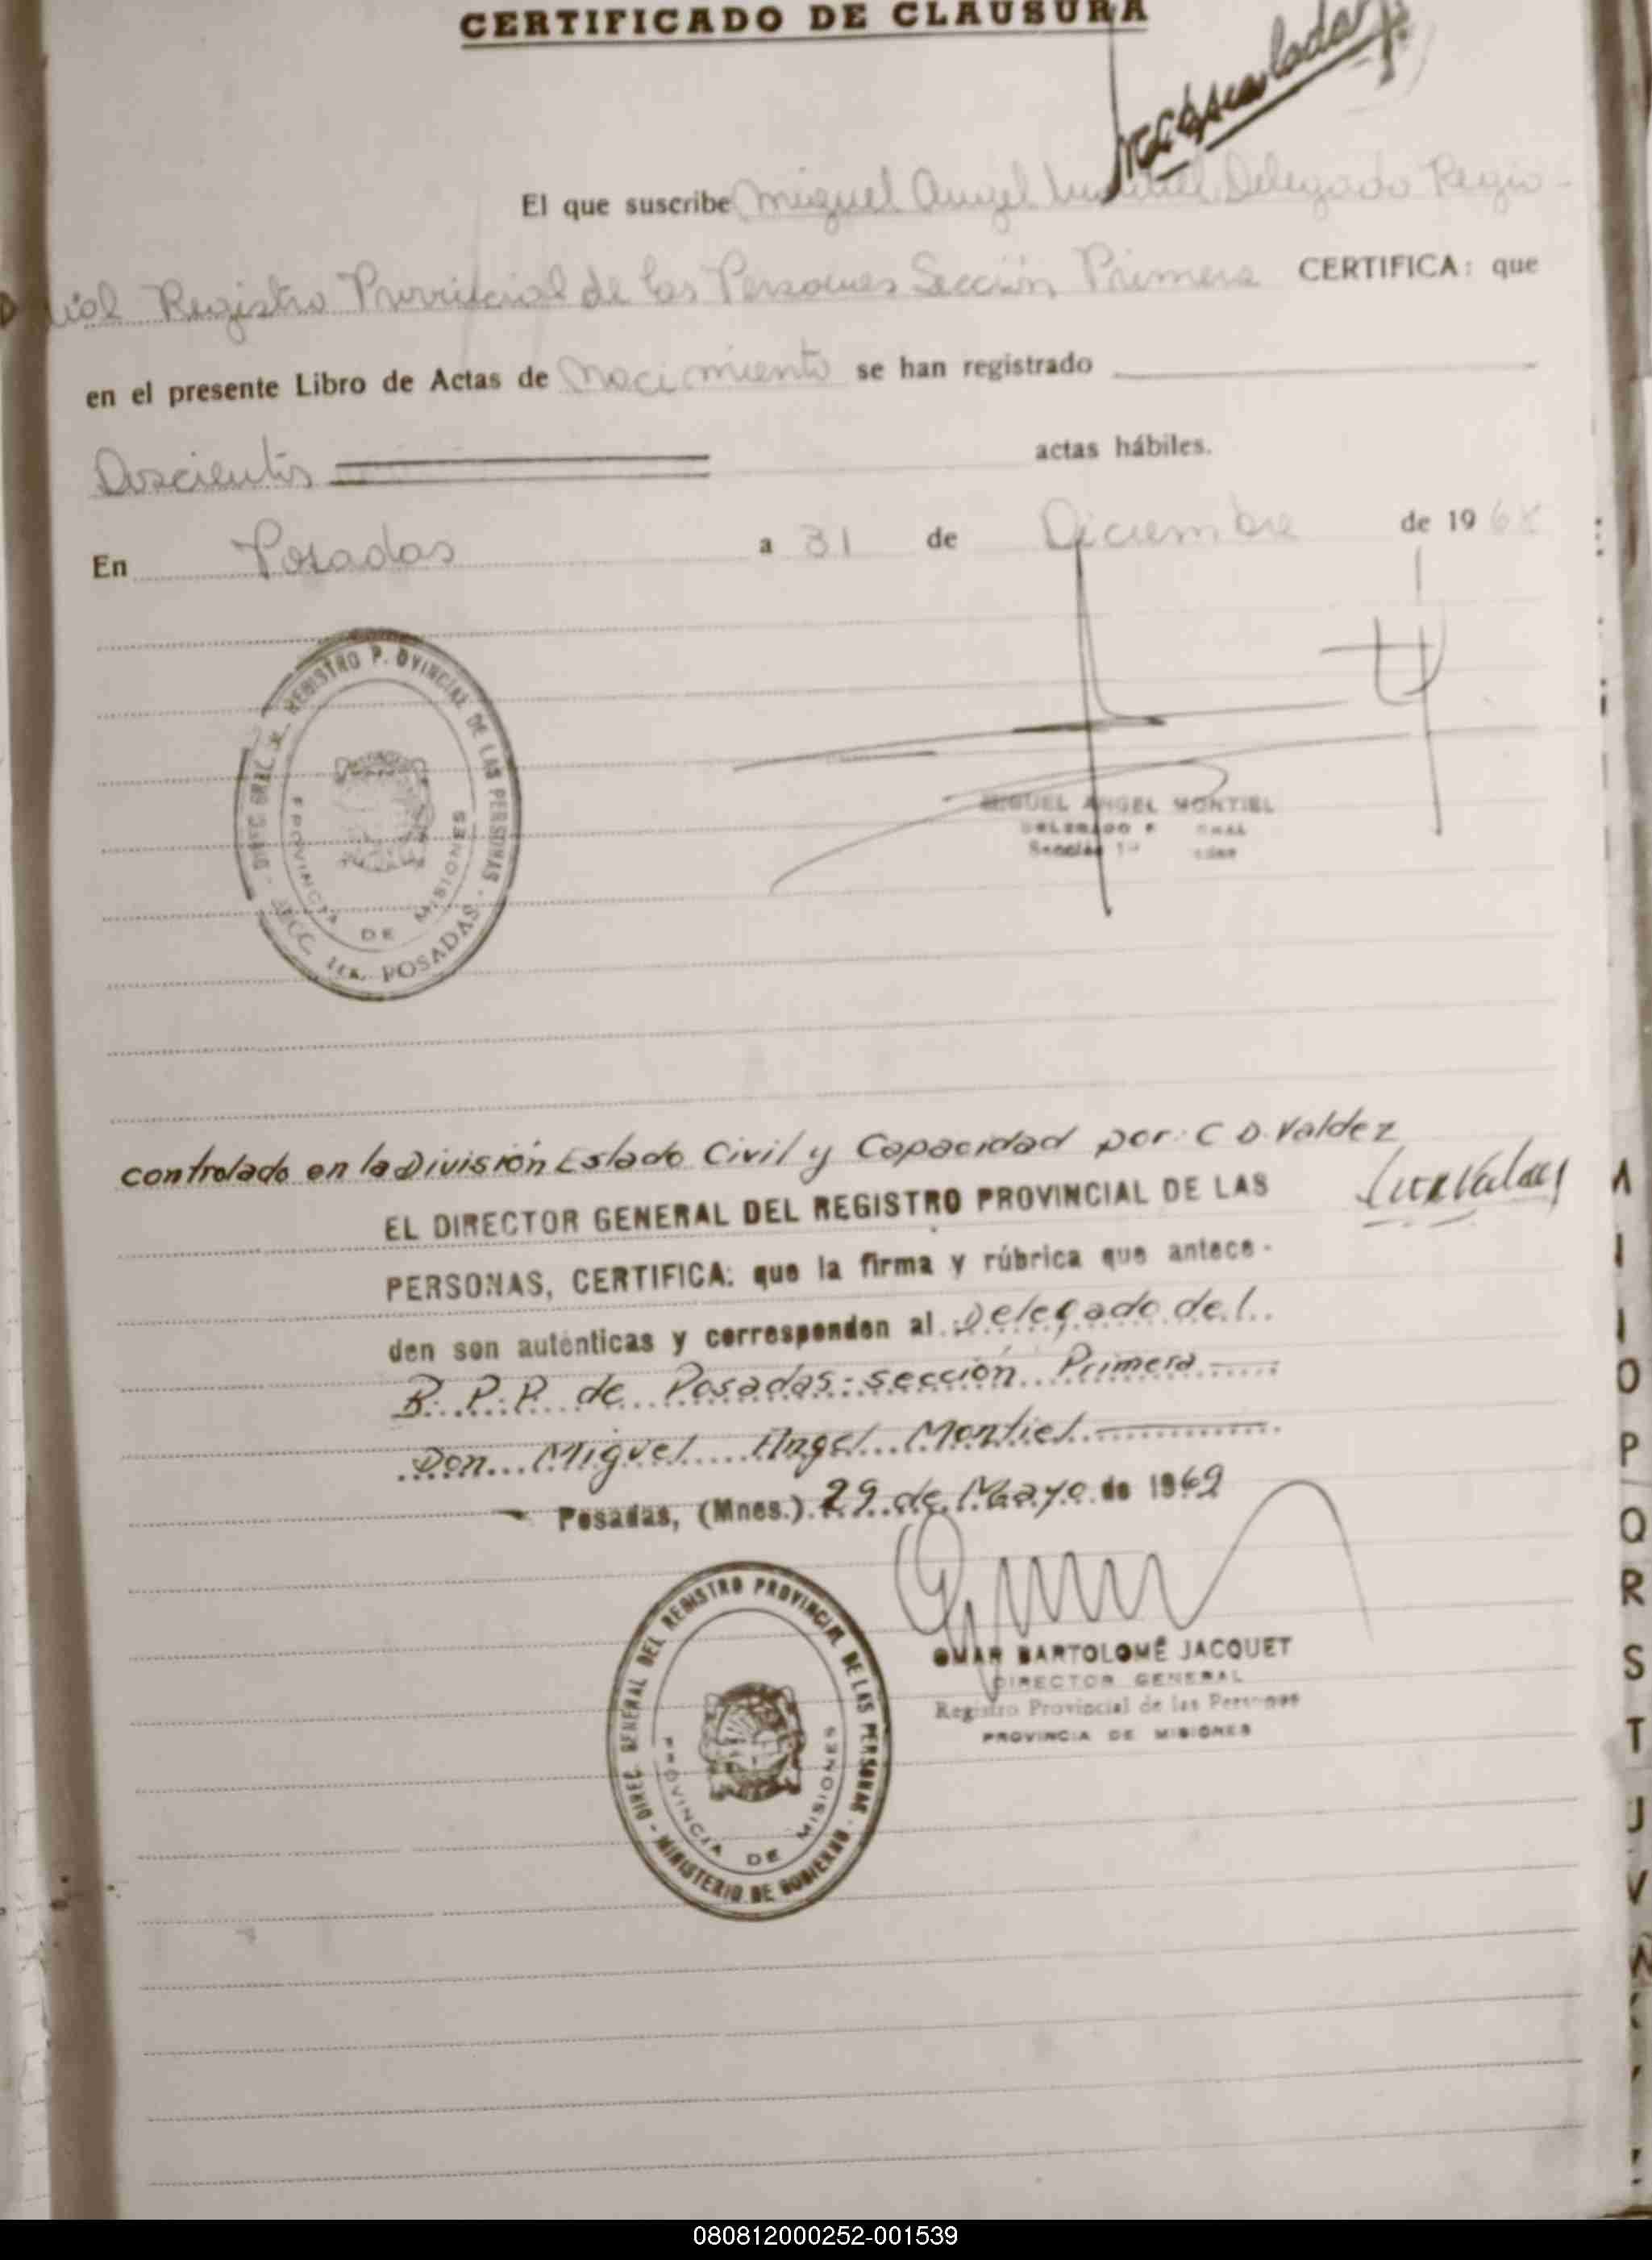 CERTIFICADO DE CLAUSURA
El que suscribe Miguel Angel Delegado Regio-
nal Registro Provincial de las Personas Sección Primera CERTIFICA: que
en el presente Libro de Actas de Nacimiento se han registrado
Doscientos actas hábiles.
En Posadas a 31 de Diciembre de 1968
REGISTRO P. OVINCIAL DE LAS PERSONAS - SECC. 1ra. POSADAS
PROVINCIA DE MISIONES
MIGUEL ANGEL MONTIEL
controlado en la División Estado Civil y Capacidad por: C D. Valdez
EL DIRECTOR GENERAL DEL REGISTRO PROVINCIAL DE LAS
PERSONAS, CERTIFICA: que la firma y rúbrica que antece-
den son auténticas y corresponden al Delegado del
R. P. P. de Posadas-sección Primera
Don Miguel Angel Montiel
Posadas, (Mnes.) 29 de Mayo de 1969
DIREC. GENERAL DEL REGISTRO PROVINCIAL DE LAS PERSONAS - MINISTERIO DE GOBIERNO -
PROVINCIA DE MISIONES
OMAR BARTOLOMÉ JACQUET
DIRECTOR GENERAL
Registro Provincial de las Personas
PROVINCIA DE MISIONES
O
P
Q
R
S
T
U
V
080812000252-001539